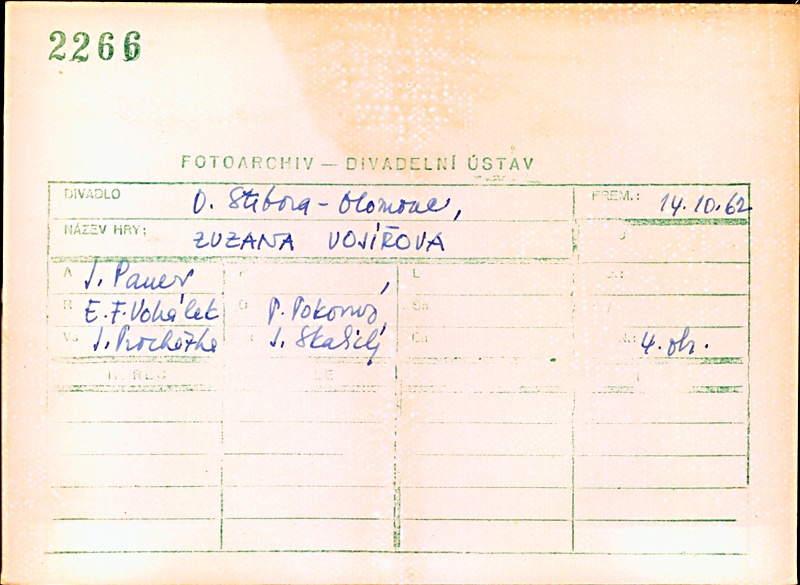 2266
FOTOARCHIV — DIVADELNÍ ÚSTAV
DIVADLO O. Stibora - Olomouc, PREM.: 14.10.62
NÁZEV HRY: ZUZANA VOJÍŘOVA
A J. Pauer L
R E. F. Vohálek P. Pokorný
J. Procházka J. Skašilj 4. ob.